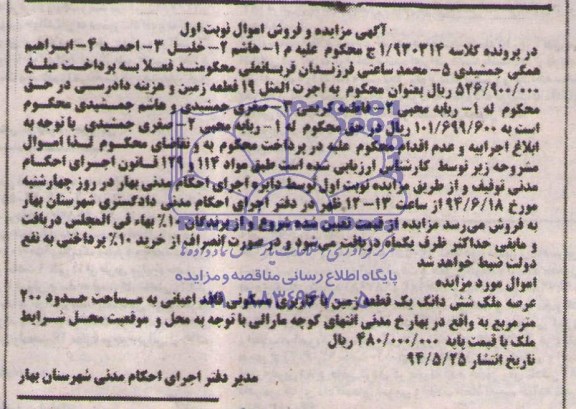 آگهی مزایده و فروش اموال نوبت اول
در پرونده کلاسه ۱/۹۳۰۳۱۴ ج محکوم علیه م ۱- هاشم ۲- خلیل ۳- احمد ۴- ابراهیم
همگی جمشیدی ۵- محمد ساعتی فرزندان قربانعلی محکومند فعلا به پرداخت مبلغ
۵۲۶/۹۰۰/۰۰۰ ریال بعنوان محکوم به اجرت المثل ۱۹ قطعه زمین و هزینه دادرسی در حق
محکوم له ۱- ربابه محبی ۲- فاطمه کریمی ۳- صغری جمشیدی و هاشم جمشیدی محکوم
است به ۱۰۱/۶۹۹/۶۰۰ ریال در حق محکوم له ۱- ربابه محبی ۲- صغری جمشیدی با توجه به
ابلاغ اجراییه و عدم اقدام محکوم علیه در پرداخت محکوم به و تقاضای محکوم لذا اموال
مشروحه زیر توسط کارشناس ارزیابی شده است طبق مواد ۱۱۴ و ۱۲۹ قانون اجرای احکام
مدنی توقیف و از طریق مزایده نوبت اول توسط دایره اجرای احکام مدنی بهار در روز چهارشنبه
مورخ ۹۴/۶/۱۸ از ساعت ۱۳-۱۲ ظهر در دفتر اجرای احکام مدنی دادگستری شهرستان بهار
به فروش می‌رسد مزایده از قیمت تعیین شده شروع و از برندگان ۱۰٪ بهاء فی المجلس دریافت
و مابقی حداکثر ظرف یکماه دریافت می‌شود و در صورت انصراف از خرید ۱۰٪ پرداختی به نفع
دولت ضبط خواهد شد
پایگاه اطلاع رسانی مناقصه و مزایده
اموال مورد مزایده
عرصه ملک شش دانگ یک قطعه زمین با کاربری مسکونی فاقد اعیانی به مساحت حدود ۲۰۰
مترمربع به واقع در بهار خ مدنی انتهای کوچه مارالی با توجه به محل و موقعیت محل شرایط
ملک با قیمت پایه ۴۸۰/۰۰۰/۰۰۰ ریال
تاریخ انتشار ۹۴/۵/۲۵
مدیر دفتر اجرای احکام مدنی شهرستان بهار